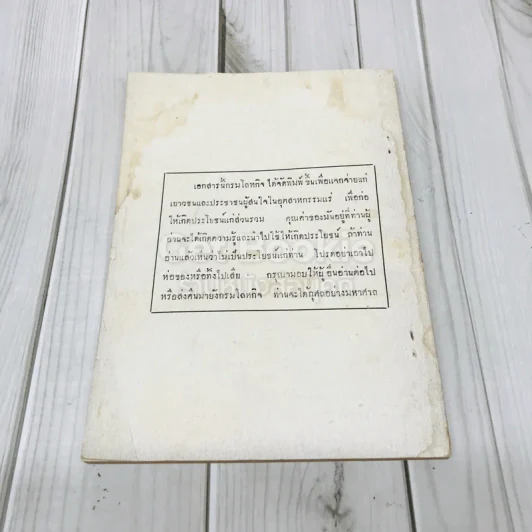 เอกสารนี้กรมโลหกิจ ได้จัดพิมพ์ ขึ้นเพื่อแจกจ่ายแก่
เยาวชนและประชาชนผู้สนใจในอุตสาหกรรมแร่ เพื่อก่อ
ให้เกิดประโยชน์แก่ส่วนรวม คุณค่าของมันอยู่ที่ท่านผู้
อ่านจะได้เกิดความรู้และนำไปใช้ให้เกิดประโยชน์ ถ้าท่าน
อ่านแล้วเห็นว่าไม่เป็นประโยชน์แก่ท่าน โปรดอย่าเอาไป
ห่อของหรือทิ้งไปเสีย กรุณามอบให้ผู้อื่นอ่านต่อไป
หรือส่งคืนมายังกรมโลหกิจ ท่านจะได้กุศลอย่างมหาศาล